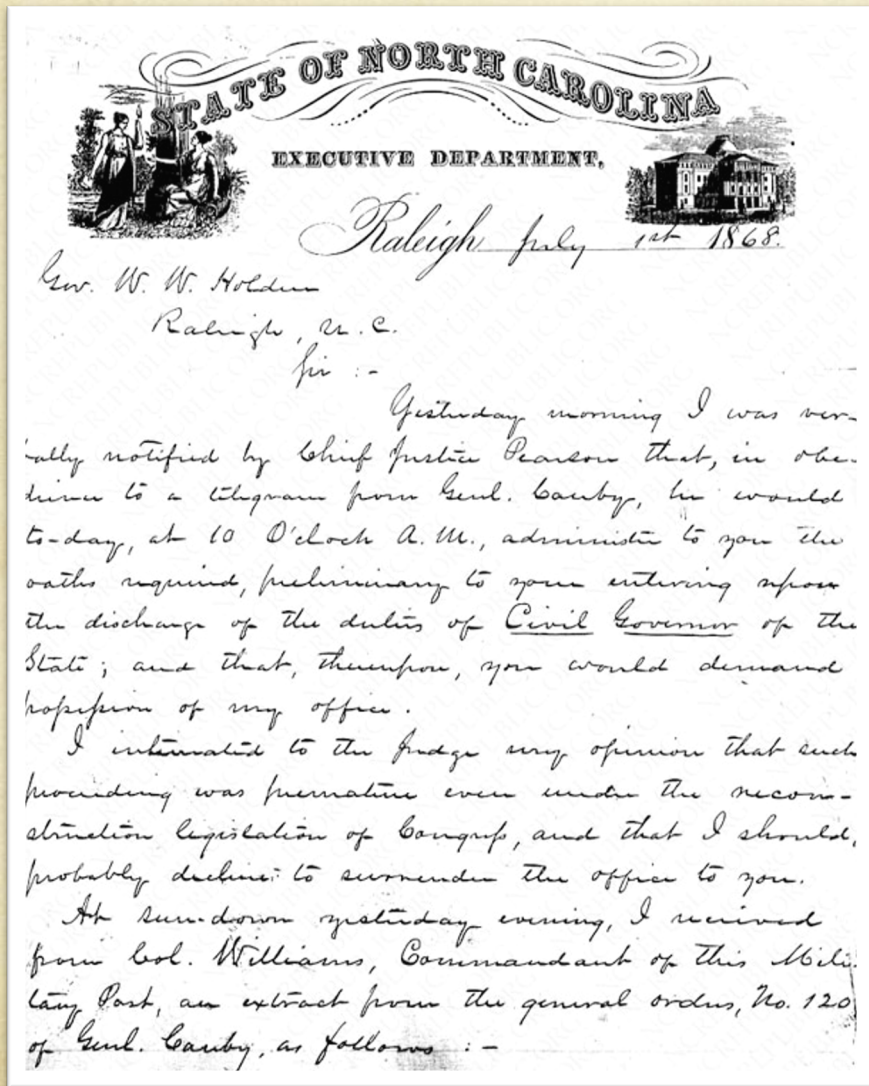 STATE OF NORTH CAROLINA
EXECUTIVE DEPARTMENT,
Raleigh July 1st 1868.
Gov. W. W. Holden
Raleigh, N. C.
Sir :-
Yesterday morning I was ver-
bally notified by Chief Justice Pearson that, in obe-
dience to a telegram from Genl. Canby, he would
to-day, at 10 O'clock A. M., administer to you the
oaths required, preliminary to your entering upon
the discharge of the duties of Civil Governor of the
State; and that, thereupon, you would demand
possession of my office.
I intimated to the Judge my opinion that such
proceeding was premature even under the recon-
struction legislation of Congress, and that I should,
probably decline to surrender the office to you.
At sun-down yesterday evening, I received
from Col. Williams, Commandant of this Mili-
tary Post, an extract from the general orders, No. 120
of Genl. Canby, as follows :-